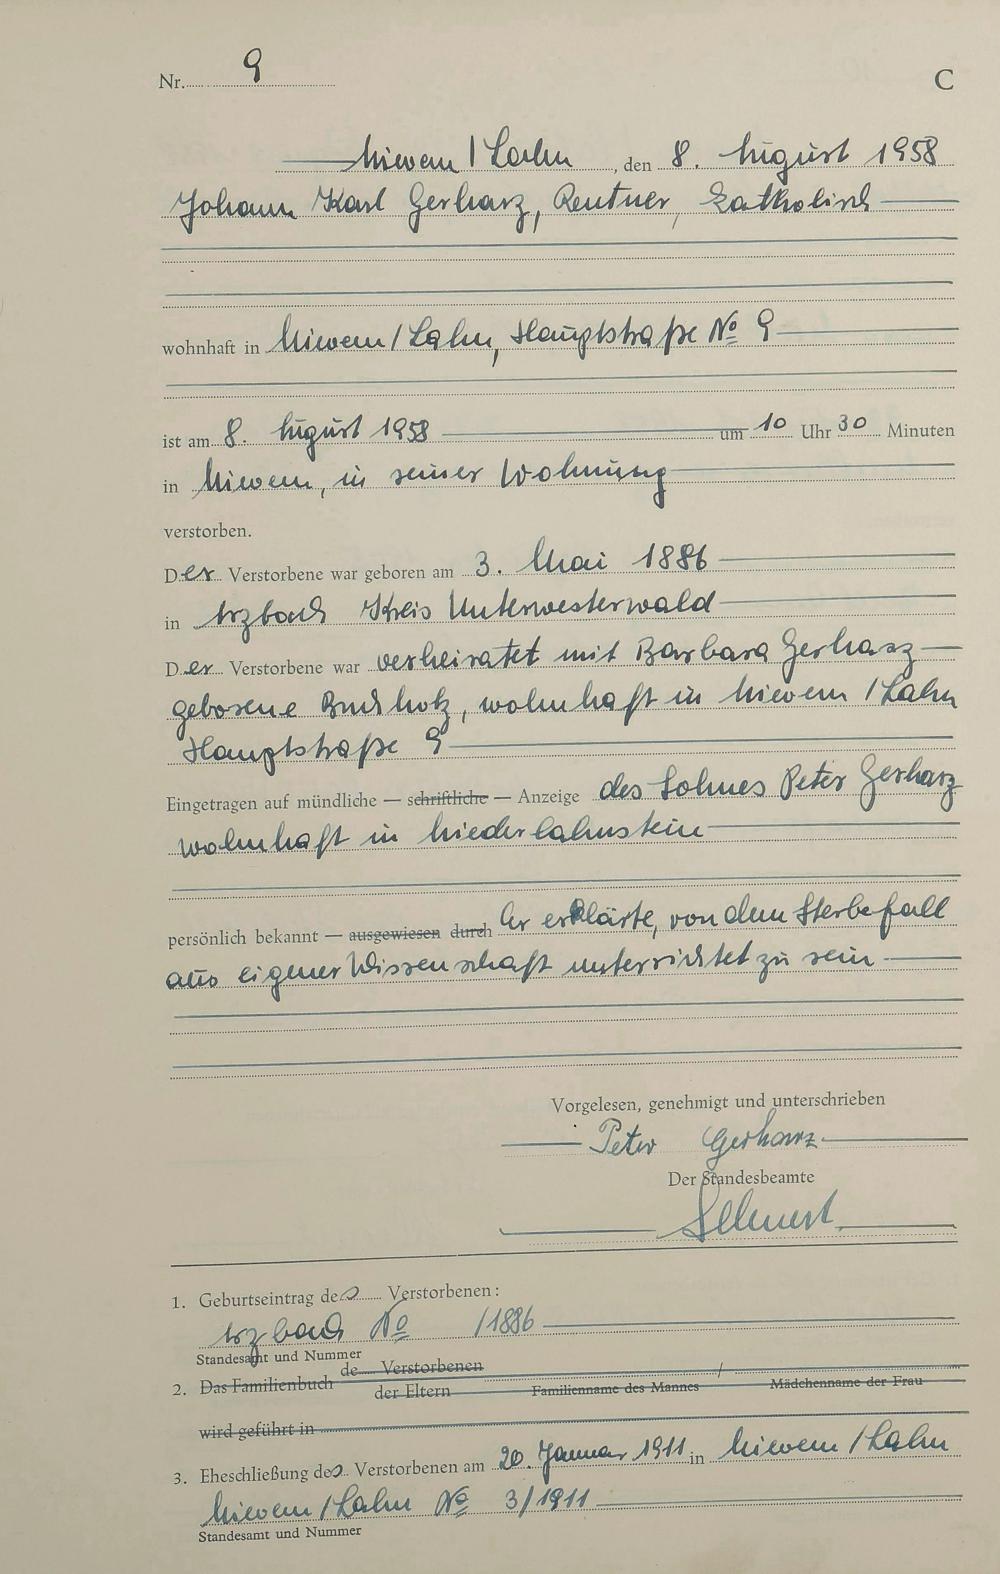 Nr. 9
C
Nievern / Lahn, den 8. August 1958
Johann Karl Gerharz, Rentner, katholisch
wohnhaft in Nievern / Lahn, Hauptstraße No 9
ist am 8. August 1958 um 10 Uhr 30 Minuten
in Nievern, in seiner Wohnung
verstorben.
Der Verstorbene war geboren am 3. Mai 1886
in Arzbach Kreis Unterwesterwald
Der Verstorbene war verheiratet mit Barbara Gerharz
geborene Buchholz, wohnhaft in Nievern / Lahn
Hauptstraße 9
Eingetragen auf mündliche — schriftliche — Anzeige des Sohnes Peter Gerharz
wohnhaft in Niederlahnstein
persönlich bekannt — ausgewiesen durch Er erklärte, von dem Sterbefall
aus eigener Wissenschaft unterrichtet zu sein
Vorgelesen, genehmigt und unterschrieben
Peter Gerharz
Der Standesbeamte
1. Geburtseintrag des Verstorbenen:
Arzbach No /1886
Standesamt und Nummer
2. Das Familienbuch de Verstorbenen /
der Eltern Familienname des Mannes Mädchenname der Frau
wird geführt in
3. Eheschließung des Verstorbenen am 20. Januar 1911 in Nievern / Lahn
Nievern / Lahn No 3/1911
Standesamt und Nummer